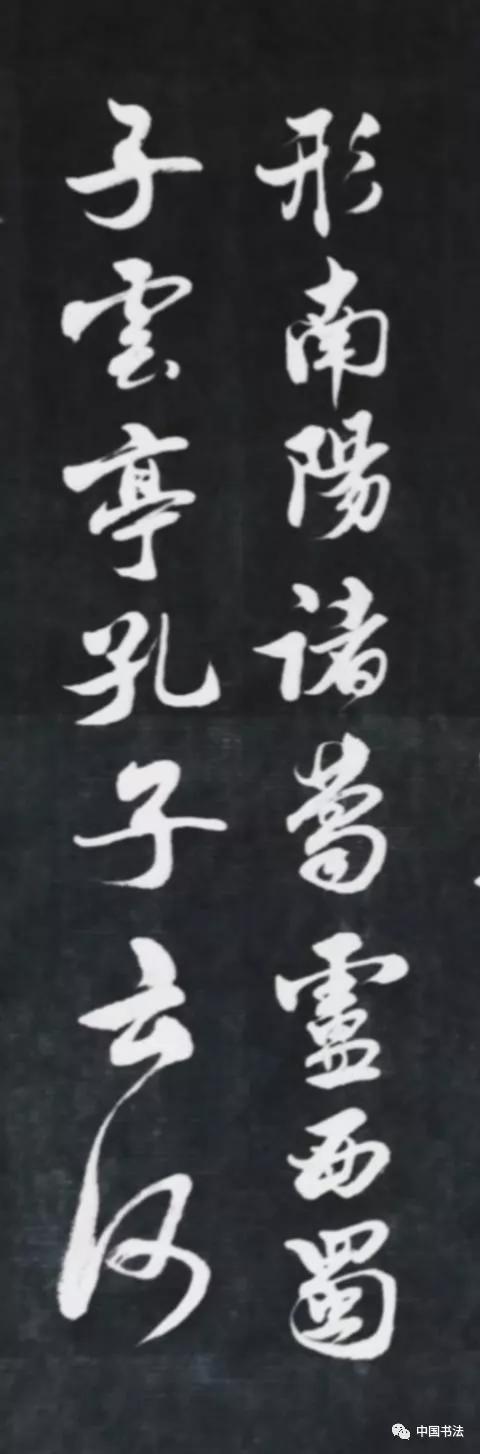 形南陽諸葛盧西蜀
子雲亭孔子云何
中国书法